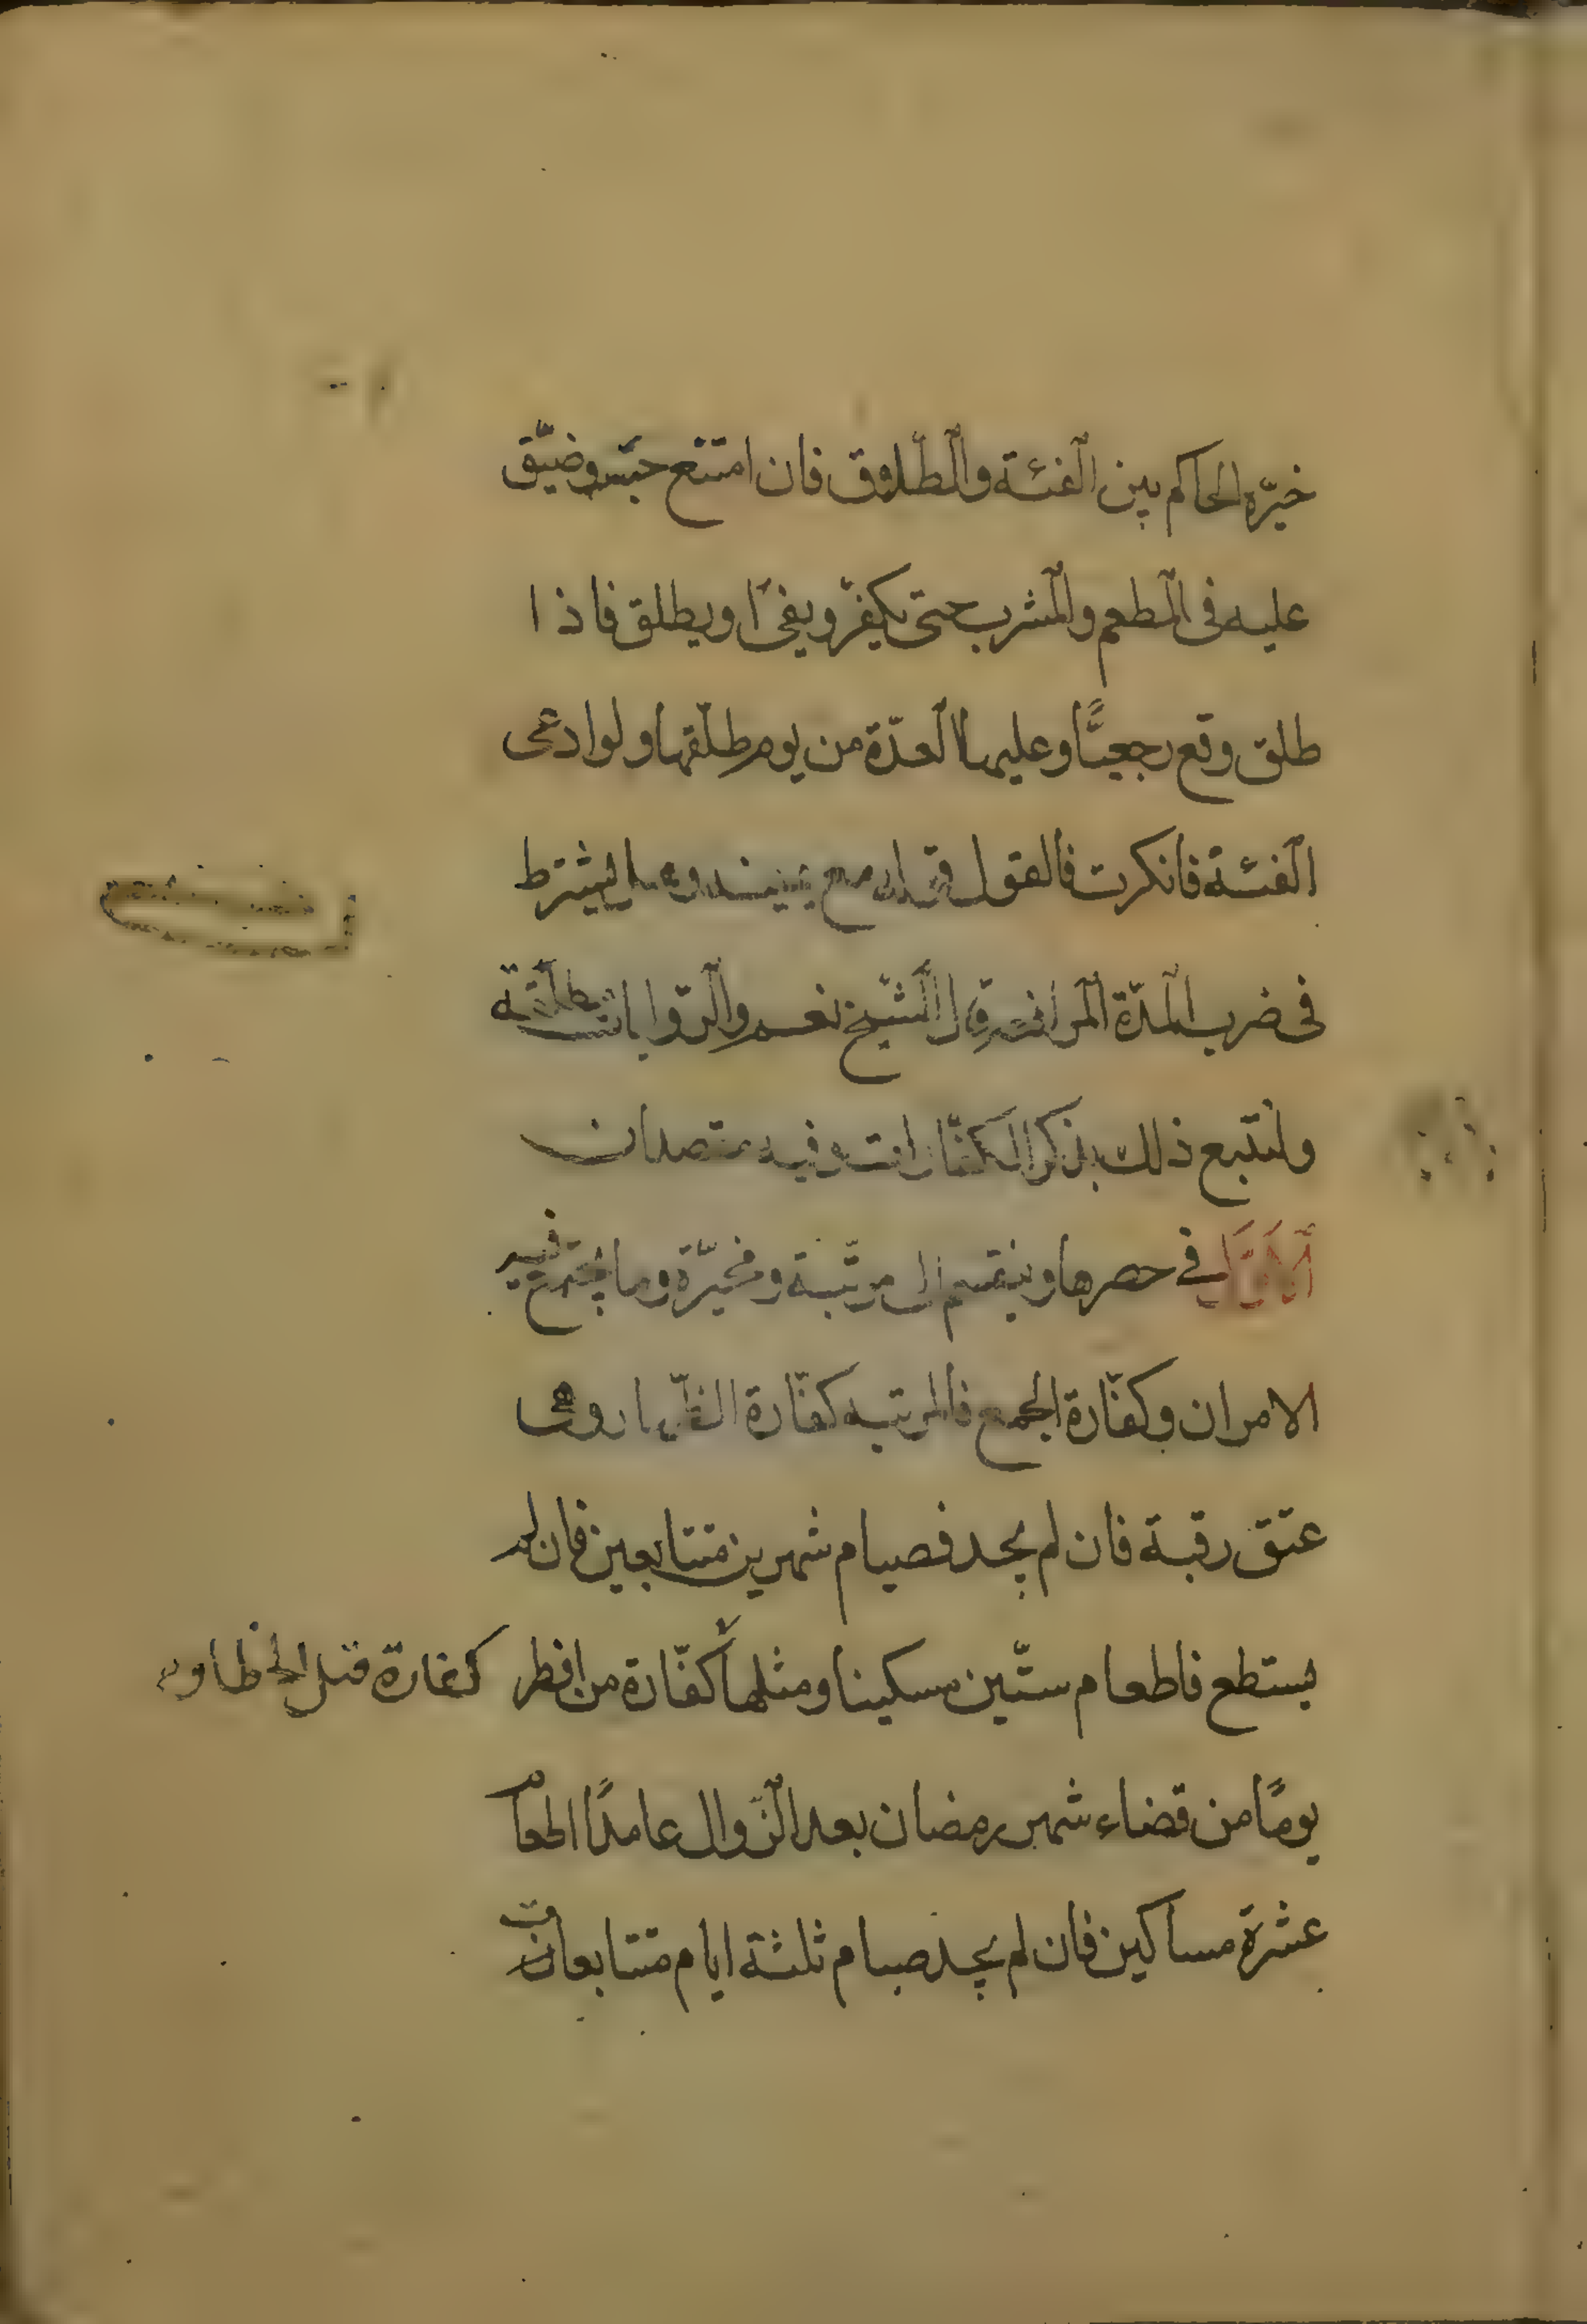 خيّره الحاكم بين الفئة والطلاق فان امتنع حبسه وضيّق
عليه فى المطعم والمشرب حتى يكفّر ويفئ او يطلق فاذا
طلق وقع رجعيًّا وعليها العدّة من يوم طلّقها ولو ادعى
الفئة فانكرت فالقول قوله مع يمينه وهل يشترط
فى ضرب المدّة المرافعة قال الشّيخ نعم والرّوايات مطلقة
ولنتبع ذلك بذكر الكفّارات وفيه مقصدان
الاوّل فى حصرها وينقسم الى مرتّبة ومخيّرة وما يجتمع فيه
الامران وكفّارة الجمع فالمرتبة كفّارة الظّهار وهى
عتق رقبة فان لم يجد فصيام شهرين متتابعين فان لم
يستطع فاطعام ستّين مسكينا ومثلها كفّارة من افطر
كفارة قتل الخطا و
يومًا من قضاء شهر رمضان بعد الزّوال عامدًا اطعام
عشرة مساكين فان لم يجد صيام ثلثة ايام متتابعات